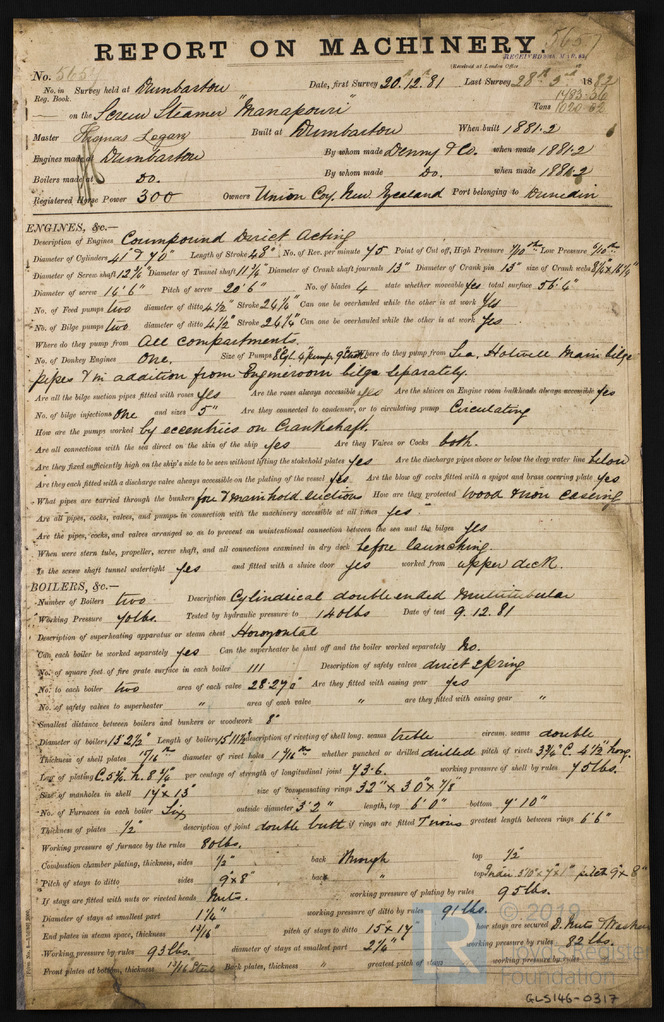 5657
REPORT ON MACHINERY.
(Received at London Office
No. 5657
No. in Reg. Book. Survey held at Dumbarton Date, first Survey 20.12.81 Last Survey 28th 3rd 1882
on the Screw Steamer "Manapouri" Tons
Master Thomas Logan Built at Dumbarton When built 1881.2
Engines made at Dumbarton By whom made Denny & Co. when made 1881.2
Boilers made at Do. By whom made Do. when made 1881.2
Registered Horse Power 300 Owners Union Coy. New Zealand Port belonging to Dunedin
ENGINES, &c.—
Description of Engines Compound Direct Acting
Diameter of Cylinders 41" & 70" Length of Stroke 48" No. of Rev. per minute 75 Point of Cut off, High Pressure 7/10th Low Pressure 6/10th
Diameter of Screw shaft 12 3/4" Diameter of Tunnel shaft 11 3/4" Diameter of Crank shaft journals 13" Diameter of Crank pin 13" size of Crank webs
Diameter of screw 16'6" Pitch of screw 20'6" No. of blades 4 state whether moveable yes total surface 56'4"
No. of Feed pumps two diameter of ditto 4 1/2" Stroke 24 1/4" Can one be overhauled while the other is at work Yes
No. of Bilge pumps two diameter of ditto 4 1/2" Stroke 24 1/4" Can one be overhauled while the other is at work Yes
Where do they pump from All compartments.
No. of Donkey Engines One, Size of Pumps 8" Cyl. 4" pump 9" Stroke Where do they pump from Sea, Hotwell Main bilge
pipes & in addition from Engineroom bilge separately.
Are all the bilge suction pipes fitted with roses Yes Are the roses always accessible yes Are the sluices on Engine room bulkheads always accessible yes
No. of bilge injections one and sizes 5" Are they connected to condenser, or to circulating pump Circulating
How are the pumps worked by eccentrics on Crankshaft.
Are all connections with the sea direct on the skin of the ship yes Are they Valves or Cocks both.
Are they fixed sufficiently high on the ship's side to be seen without lifting the stokehold plates yes Are the discharge pipes above or below the deep water line below
Are they each fitted with a discharge valve always accessible on the plating of the vessel yes. Are the blow off cocks fitted with a spigot and brass covering plate yes
What pipes are carried through the bunkers fore & main hold suctions How are they protected wood & iron casing
Are all pipes, cocks, valves, and pumps in connection with the machinery accessible at all times yes
Are the pipes, cocks, and valves arranged so as to prevent an unintentional connection between the sea and the bilges yes
When were stern tube, propeller, screw shaft, and all connections examined in dry dock before launching.
Is the screw shaft tunnel watertight yes and fitted with a sluice door yes worked from upper deck.
BOILERS, &c.—
Number of Boilers two Description Cylindrical double ended Multitubular
Working Pressure 70lbs. Tested by hydraulic pressure to 140lbs Date of test 9.12.81
Description of superheating apparatus or steam chest Horozontal
Can each boiler be worked separately yes Can the superheater be shut off and the boiler worked separately No.
No. of square feet of fire grate surface in each boiler 111 Description of safety valves direct spring
No. to each boiler two area of each valve 28.27" Are they fitted with easing gear yes
No. of safety valves to superheater " area of each valve " are they fitted with easing gear "
Smallest distance between boilers and bunkers or woodwork 8"
Diameter of boilers 13'2 1/2" Length of boilers 15'11 1/2" description of riveting of shell long. seams treble circum. seams double
Thickness of shell plates 15/16ths diameter of rivet holes 1 1/16ths whether punched or drilled drilled pitch of rivets 3 3/4" C. 4 1/2" horz.
Lap of plating C 5 3/4. h. 8 1/4" per centage of strength of longitudinal joint 73.6. working pressure of shell by rules 75lbs.
Size of manholes in shell 17" x 13" size of compensating rings 32" x 30" x 7/8"
No. of Furnaces in each boiler Six outside diameter 3'2" length, top 6'0" bottom 9'10"
Thickness of plates 1/2" description of joint double butt if rings are fitted T irons greatest length between rings 6'6"
Working pressure of furnace by the rules 80lbs.
Combustion chamber plating, thickness, sides 1/2" back through top 1/2"
Pitch of stays to ditto sides 9" x 8" back " top
If stays are fitted with nuts or riveted heads Nuts. working pressure of plating by rules 95lbs.
Diameter of stays at smallest part 1 1/4" working pressure of ditto by rules 91lbs.
End plates in steam space, thickness 13/16" pitch of stays to ditto 15" x 14" how stays are secured D. Nuts & Washers
Working pressure by rules 93lbs. diameter of stays at smallest part 2 1/4" working pressure by rules 82lbs.
Front plates at bottom, thickness 13/16 Steel Back plates, thickness " greatest pitch of stays working pressure by rules
© 2019
LR
Lloyd's Register
Foundation
GLS146-0317